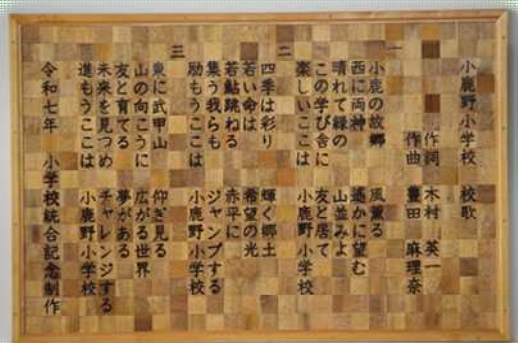 小鹿野小学校 校歌
作詞 木村 英一
作曲 豊田 麻理奈
一
小鹿の故郷 風薫る
西に両神 遥かに望む
晴れて緑の 山並みよ
この学び舎に 友と居て
楽しいここは 小鹿野小学校
二
四季は彩り 輝く郷土
若い命は 希望の光
若鮎跳ねる 赤平に
集う我らも ジャンプする
励もうここは 小鹿野小学校
三
東に武甲山 仰ぎ見る
山の向こうに 広がる世界
友と育てる 夢がある
未来を見つめ チャレンジする
進もうここは 小鹿野小学校
令和七年 小学校統合記念制作